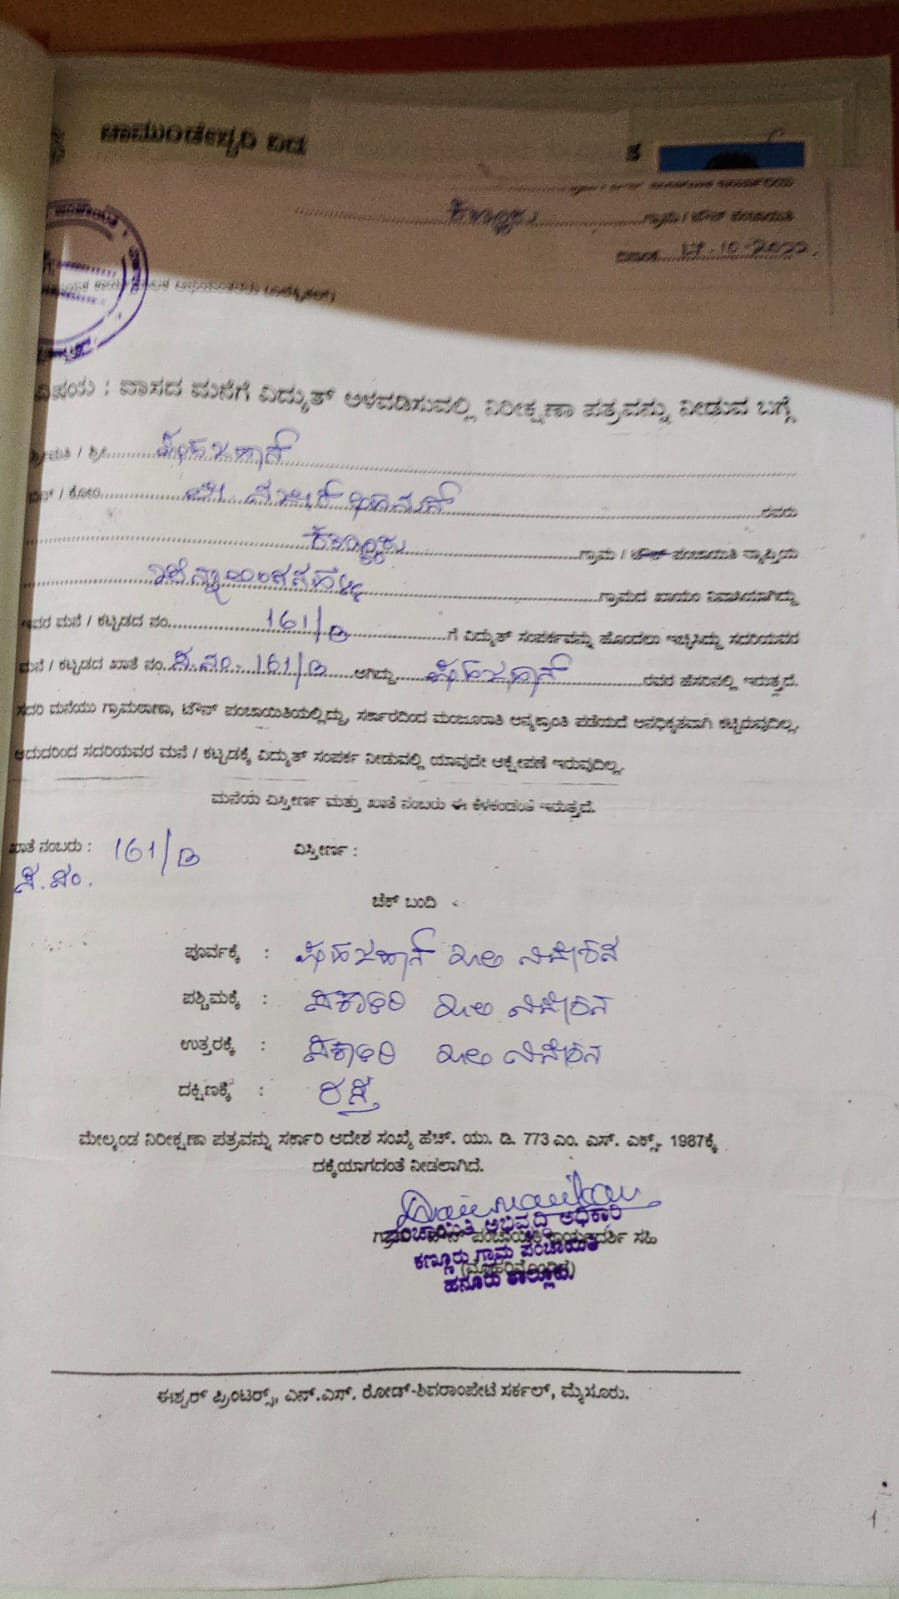 ಕಣ್ಣೂರು ಗ್ರಾಮ / ಟೌನ್ ಪಂಚಾಯಿತಿ
ದಿನಾಂಕ 17-10-2022.
ವಿಷಯ : ವಾಸದ ಮನೆಗೆ ವಿದ್ಯುತ್ ಅಳವಡಿಸುವಲ್ಲಿ ನಿರೀಕ್ಷಣಾ ಪತ್ರವನ್ನು ನೀಡುವ ಬಗ್ಗೆ
ಶ್ರೀಮತಿ / ಶ್ರೀ
ಬಿನ್ / ಕೋಂ ರವರು
ಕಣ್ಣೂರು ಗ್ರಾಮ / ಟೌನ್ ಪಂಚಾಯಿತಿ ವ್ಯಾಪ್ತಿಯ
ಗ್ರಾಮದ ಖಾಯಂ ನಿವಾಸಿಯಾಗಿದ್ದು
ಇವರ ಮನೆ / ಕಟ್ಟಡದ ನಂ. 161/D ಗೆ ವಿದ್ಯುತ್ ಸಂಪರ್ಕವನ್ನು ಹೊಂದಲು ಇಚ್ಛಿಸಿದ್ದು ಸದರಿಯವರ
ಮನೆ / ಕಟ್ಟಡದ ಖಾತೆ ನಂ. ಸ.ನಂ. 161/D ಆಗಿದ್ದು ರವರ ಹೆಸರಿನಲ್ಲಿ ಇರುತ್ತದೆ.
ಸದರಿ ಮನೆಯು ಗ್ರಾಮಠಾಣಾ, ಟೌನ್ ಪಂಚಾಯಿತಿಯಲ್ಲಿದ್ದು, ಸರ್ಕಾರದಿಂದ ಮಂಜೂರಾತಿ ಅನ್ಯಕ್ರಾಂತಿ ಪಡೆಯದೆ ಅನಧಿಕೃತವಾಗಿ ಕಟ್ಟಿರುವುದಿಲ್ಲ.
ಆದುದರಿಂದ ಸದರಿಯವರ ಮನೆ / ಕಟ್ಟಡಕ್ಕೆ ವಿದ್ಯುತ್ ಸಂಪರ್ಕ ನೀಡುವಲ್ಲಿ ಯಾವುದೇ ಆಕ್ಷೇಪಣೆ ಇರುವುದಿಲ್ಲ.
ಮನೆಯ ವಿಸ್ತೀರ್ಣ ಮತ್ತು ಖಾತೆ ನಂಬರು ಈ ಕೆಳಕಂಡಂತೆ ಇರುತ್ತದೆ.
ಖಾತೆ ನಂಬರು : 161/D ವಿಸ್ತೀರ್ಣ :
ಸ.ನಂ.
ಚೆಕ್ ಬಂದಿ
ಪೂರ್ವಕ್ಕೆ : ನಿವೇಶನ
ಪಶ್ಚಿಮಕ್ಕೆ : ಸರ್ಕಾರಿ ನಿವೇಶನ
ಉತ್ತರಕ್ಕೆ : ಸರ್ಕಾರಿ ನಿವೇಶನ
ದಕ್ಷಿಣಕ್ಕೆ : ರಸ್ತೆ
ಮೇಲ್ಕಂಡ ನಿರೀಕ್ಷಣಾ ಪತ್ರವನ್ನು ಸರ್ಕಾರಿ ಆದೇಶ ಸಂಖ್ಯೆ ಹೆಚ್. ಯು. ಡಿ. 773 ಎಂ. ಎಸ್. ಎಕ್ಸ್. 1987ಕ್ಕೆ
ದಕ್ಕೆಯಾಗದಂತೆ ನೀಡಲಾಗಿದೆ.
ಪಂಚಾಯಿತಿ ಅಭಿವೃದ್ಧಿ ಅಧಿಕಾರಿ
ಕಣ್ಣೂರು ಗ್ರಾಮ ಪಂಚಾಯಿತಿ
ಹನೂರು ತಾಲ್ಲೂಕು
ಈಶ್ವರ್ ಪ್ರಿಂಟರ್ಸ್, ಎನ್.ಎಸ್. ರೋಡ್-ಶಿವರಾಂಪೇಟೆ ಸರ್ಕಲ್, ಮೈಸೂರು.
1